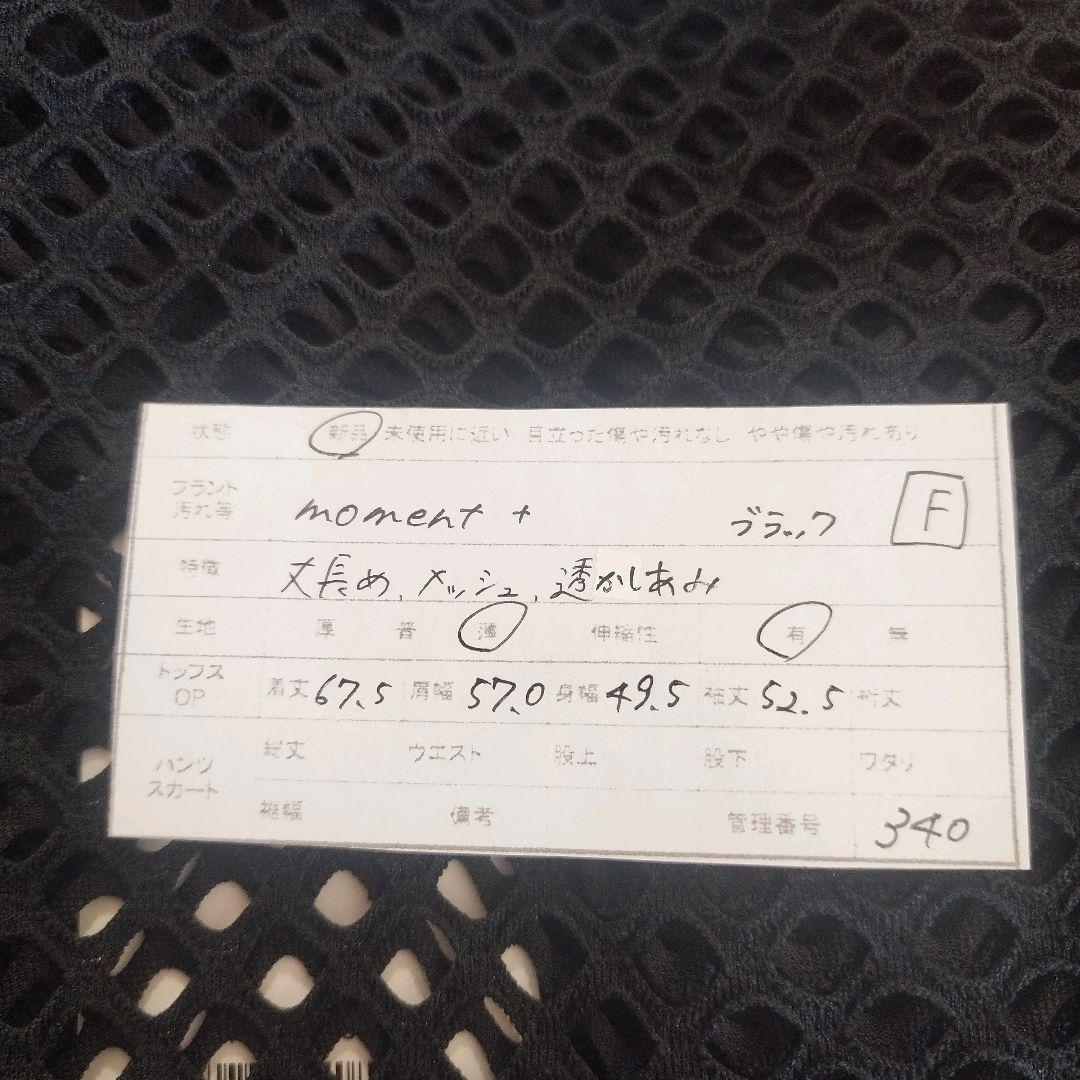 状態 新品 未使用に近い 目立った傷や汚れなし やや傷や汚れあり
ブランド 汚れ等 moment + ブラック F
特徴 丈長め、メッシュ、透かしあみ
生地 厚 普 薄 伸縮性 有 無
トップス OP 着丈 67.5 肩幅 57.0 身幅 49.5 袖丈 52.5 裄丈
パンツ スカート 総丈 ウエスト 股上 股下 ワタリ
裾幅 備考 管理番号 340